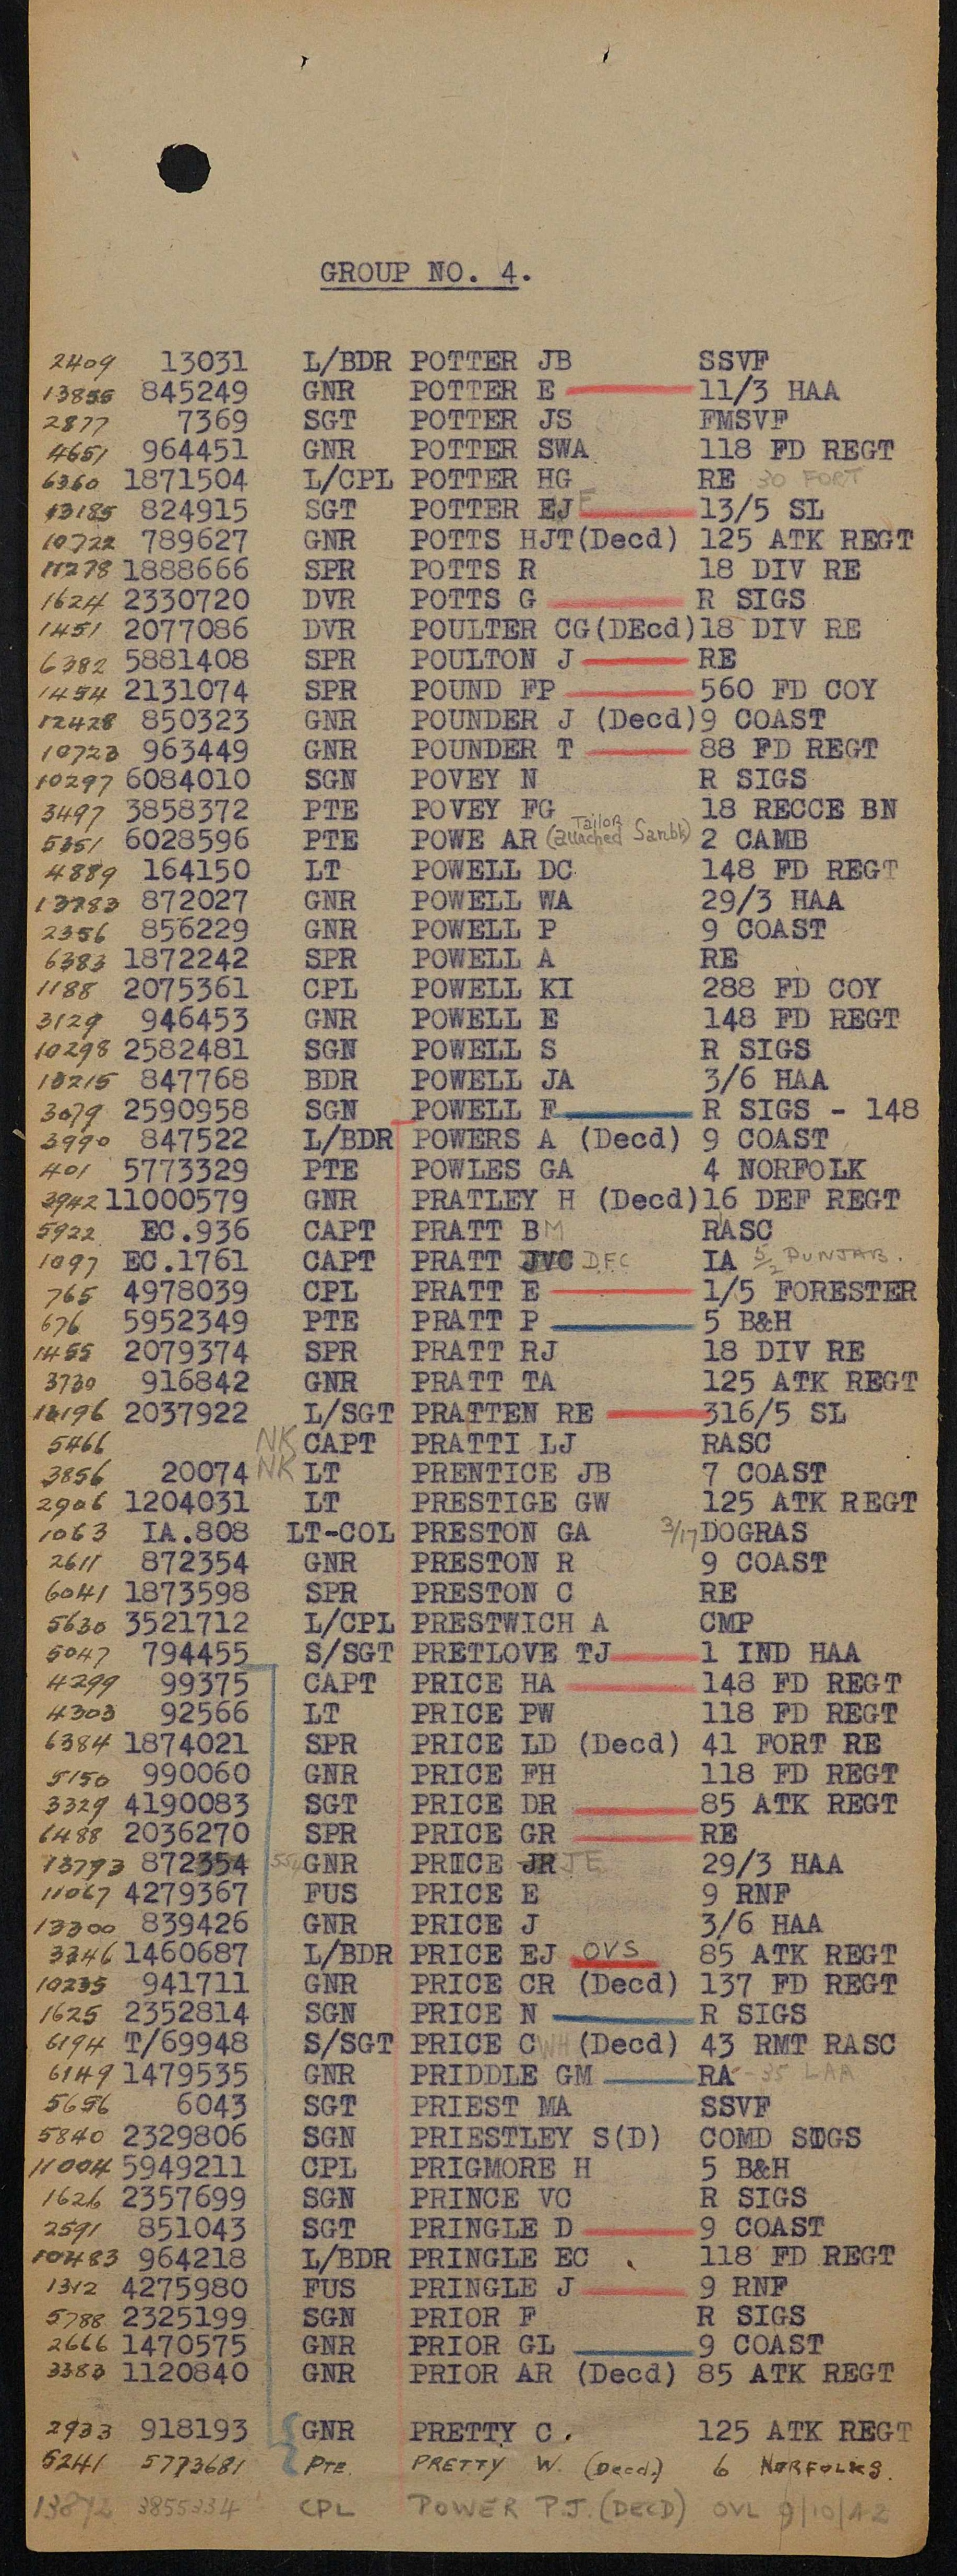 GROUP NO. 4.
2409 13031 L/BDR POTTER JB SSVF
13855 845249 GNR POTTER E 11/3 HAA
2877 7369 SGT POTTER JS FMSVF
4651 964451 GNR POTTER SWA 118 FD REGT
6360 1871504 L/CPL POTTER HG RE 30 FORT
13185 824915 SGT POTTER EJF 13/5 SL
10722 789627 GNR POTTS HJT(Decd) 125 ATK REGT
11278 1888666 SPR POTTS R 18 DIV RE
1624 2330720 DVR POTTS G R SIGS
1451 2077086 DVR POULTER CG(DEcd)18 DIV RE
6382 5881408 SPR POULTON J RE
1454 2131074 SPR POUND FP 560 FD COY
12428 850323 GNR POUNDER J (Decd)9 COAST
10723 963449 GNR POUNDER T 88 FD REGT
10297 6084010 SGN POVEY N R SIGS
3497 3858372 PTE POVEY FG 18 RECCE BN
5351 6028596 PTE POWE AR (Tailor attached Sambk) 2 CAMB
4889 164150 LT POWELL DC 148 FD REGT
13783 872027 GNR POWELL WA 29/3 HAA
2356 856229 GNR POWELL P 9 COAST
6383 1872242 SPR POWELL A RE
1188 2075361 CPL POWELL KI 288 FD COY
3129 946453 GNR POWELL E 148 FD REGT
10298 2582481 SGN POWELL S R SIGS
13215 847768 BDR POWELL JA 3/6 HAA
3079 2590958 SGN POWELL F R SIGS - 148
3990 847522 L/BDR POWERS A (Decd) 9 COAST
401 5773329 PTE POWLES GA 4 NORFOLK
3942 11000579 GNR PRATLEY H (Decd)16 DEF REGT
5922 EC.936 CAPT PRATT BM RASC
1097 EC.1761 CAPT PRATT JVC DFC IA 5/2 PUNJAB.
765 4978039 CPL PRATT E 1/5 FORESTER
676 5952349 PTE PRATT P 5 B&H
1455 2079374 SPR PRATT RJ 18 DIV RE
3730 916842 GNR PRATT TA 125 ATK REGT
13196 2037922 L/SGT PRATTEN RE 316/5 SL
5466 NK CAPT PRATTI LJ RASC
3856 20074 NK LT PRENTICE JB 7 COAST
2906 1204031 LT PRESTIGE GW 125 ATK REGT
1063 IA.808 LT-COL PRESTON GA 3/17 DOGRAS
2611 872354 GNR PRESTON R 9 COAST
6041 1873598 SPR PRESTON C RE
5630 3521712 L/CPL PRESTWICH A CMP
5047 794455 S/SGT PRETLOVE TJ 1 IND HAA
4299 99375 CAPT PRICE HA 148 FD REGT
4303 92566 LT PRICE PW 118 FD REGT
6384 1874021 SPR PRICE LD (Decd) 41 FORT RE
5150 990060 GNR PRICE FH 118 FD REGT
3329 4190083 SGT PRICE DR 85 ATK REGT
6488 2036270 SPR PRICE GR RE
13793 872354 554 GNR PRICE JR JE 29/3 HAA
11067 4279367 FUS PRICE E 9 RNF
13300 839426 GNR PRICE J 3/6 HAA
3346 1460687 L/BDR PRICE EJ OVS 85 ATK REGT
10235 941711 GNR PRICE CR (Decd) 137 FD REGT
1625 2352814 SGN PRICE N R SIGS
6194 T/69948 S/SGT PRICE CWH (Decd) 43 RMT RASC
6149 1479535 GNR PRIDDLE GM RA - 35 LAA
5656 6043 SGT PRIEST MA SSVF
5840 2329806 SGN PRIESTLEY S(D) COMD SIGS
11004 5949211 CPL PRIGMORE H 5 B&H
1626 2357699 SGN PRINCE VC R SIGS
2591 851043 SGT PRINGLE D 9 COAST
10483 964218 L/BDR PRINGLE EC 118 FD REGT
1312 4275980 FUS PRINGLE J 9 RNF
5788 2325199 SGN PRIOR F R SIGS
2666 1470575 GNR PRIOR GL 9 COAST
3383 1120840 GNR PRIOR AR (Decd) 85 ATK REGT
2933 918193 GNR PRETTY C. 125 ATK REGT
5241 5773681 Pte. PRETTY W. (Decd.) 6 NORFOLKS.
13872 3855334 CPL POWER P.J. (DECD) OVL 9/10/42